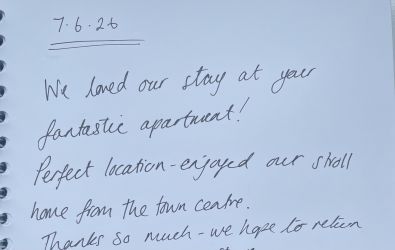 7.6.26
We loved our stay at your
fantastic apartment!
Perfect location - enjoyed our stroll
home from the town centre.
Thanks so much - we hope to return